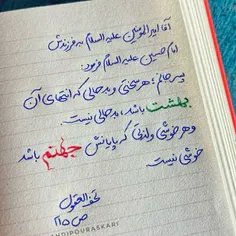 آقا امیرالمؤمنین علیه السلام به فرزندش
امام حسین علیه السلام فرمود:
پسر جانم؛ هر سختی و بدحالی که انتهای آن
بهشت باشد، بدحالی نیست.
و هر خوشی و لذتی که پایانش جهنم باشد
خوشی نیست.
تحف العقول
ص
NDIPOURASKARI